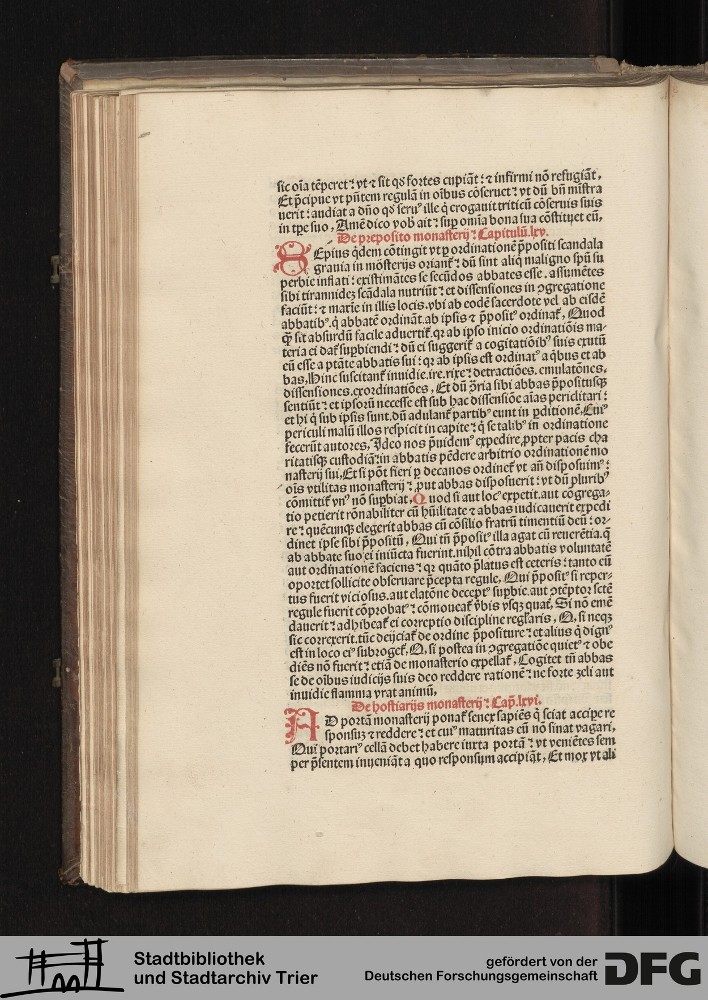 sic oīa tēperet: vt ⁊ sit qd̄ fortes cupiāt: ⁊ infirmi nō refugiāt.
Et p̄cipue vt p̄ntem regulā in oībus cōseruet: vt dū bn̄ mīstra
uerit: audiat a dn̄o qd̄ seruꝰ ille q̄ erogauit triticū cōseruis suis
in tp̄e suo, Amē dico vob̄ ait: sup̄ omnia bona sua cōstituet eū,
De preposito monasterij: Capitulū. lxv.
SEpius q̄dem cōtingit vt p̱ ordinationē p̄positi scandala
grauia in mōsterijs oriant᷑: dū sint aliq̄ maligno spū su
perbie inflati: existimātes se secūdos abbates esse. assumētes
sibi tirannidē: scādala nutriūt: et dissensiones in ꝯgregatione
faciūt: ⁊ maxīe in illis locis. vbi ab eodē sacerdote vel ab eisdē
abbatibꝰ. q̄ abbatē ordināt. ab ipsis ⁊ p̄positꝰ ordinat᷑, Quod
q̄ꝫ sit absurdū facile aduertit᷑. qr ab ipso inicio ordinatiōis ma-
teria ei dat᷑ sup̱biendi: dū ei suggerit᷑ a cogitatiōibꝰ suis exutū
eū esse a ptāte abbatis sui: qr ab ipsis est ordinatꝰ a q̄bus et ab
bas, Hinc suscitant᷑ inuidie. ire. rixe: detractiōes. emulatōnes.
dissensiones. exordinatiōes, Et dū ꝯ̄ria sibi abbas p̄positusqꝫ
sentiūt: et ipsorū necesse est sub hac dissensiōe aīas periclitari:
et hi q̄ sub ipsis sunt. dū adulant᷑ partibꝰ eunt in p̱ditionē, Cuiꝰ
periculi malū illos respicit in capite: q̄ se talibꝰ in ordinatione
fecerūt autores, Ideo nos p̄uidemꝰ expedire. ꝓpter pacis cha
ritatisqꝫ custodiā: in abbatis pēdere arbitrio ordinationē mo
nasterij sui, Et si pōt fieri p̱ decanos ordinet᷑ vt an̄ disposuimꝰ:
oīs vtilitas monasterij: ꝓut abbas disposuerit: vt dū pluribꝰ
cōmittit᷑ vnꝰ nō sup̱biat, Quod si aut locꝰ expetit. aut cōgrega-
tio petierit rōnabiliter cū hūilitate ⁊ abbas iudicauerit expedi
re: quēcunqꝫ elegerit abbas cū cōsilio fratrū timentiū deū: or-
dinet ipse sibi p̄positū, Qui tn̄ p̄positꝰ illa agat cū reuerētia. q̄
ab abbate suo ei iniūcta fuerint. nihil cōtra abbatis voluntatē
aut ordinationē faciens: qr quāto p̄latus est ceteris: tanto eū
oportet sollicite obseruare p̄cepta regule, Qui p̄positꝰ si reper-
tus fuerit viciosus. aut elatōne deceptꝰ sup̱bie. aut ꝯtēptor sctē
regule fuerit cōprobatꝰ: cōmoueat᷑ v̄bis vsqꝫ quat᷑, Si nō emē
dauerit: adhibeat᷑ ei correptio discipline regl̄aris, Q, si neqꝫ
sic correxerit. tūc deijciat᷑ de ordine p̄positure: et alius q̄ dignꝰ
est in loco eiꝰ subroget᷑, Q, si postea in ꝯgregatiōe quietꝰ ⁊ obe
diēs nō fuerit: etiā de monasterio expellat᷑, Cogitet tn̄ abbas
se de oībus iudicijs suis deo reddere rationē: ne forte zeli aut
inuidie flamma vrat animū,
De hostiarijs monasterij: Cap̄. lxvi.
AD portā monasterij ponat᷑ senex sapiēs q̄ sciat accipe re
sponsuꝫ ⁊ reddere: et cuiꝰ maturitas eū nō sinat vagari,
Qui portariꝰ cellā debet habere iuxta portā: vt veniētes sem
per p̄sentem inueniāt a quo responsum accipiāt, Et mox vt ali
Stadtbibliothek
und Stadtarchiv Trier
gefördert von der
Deutschen Forschungsgemeinschaft
DFG